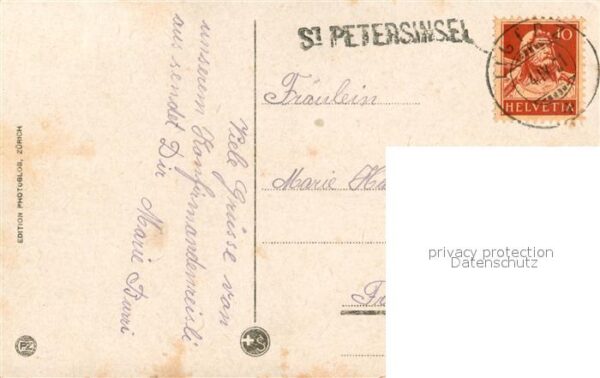 St PETERSINSEL
10
HELVETIA
Fräulein
Marie
Viele Grüsse von
unserem Konfirmandenreisli
aus sendet Dir
Marie Burri
EDITION PHOTOGLOB, ZÜRICH
privacy protection
Datenschutz